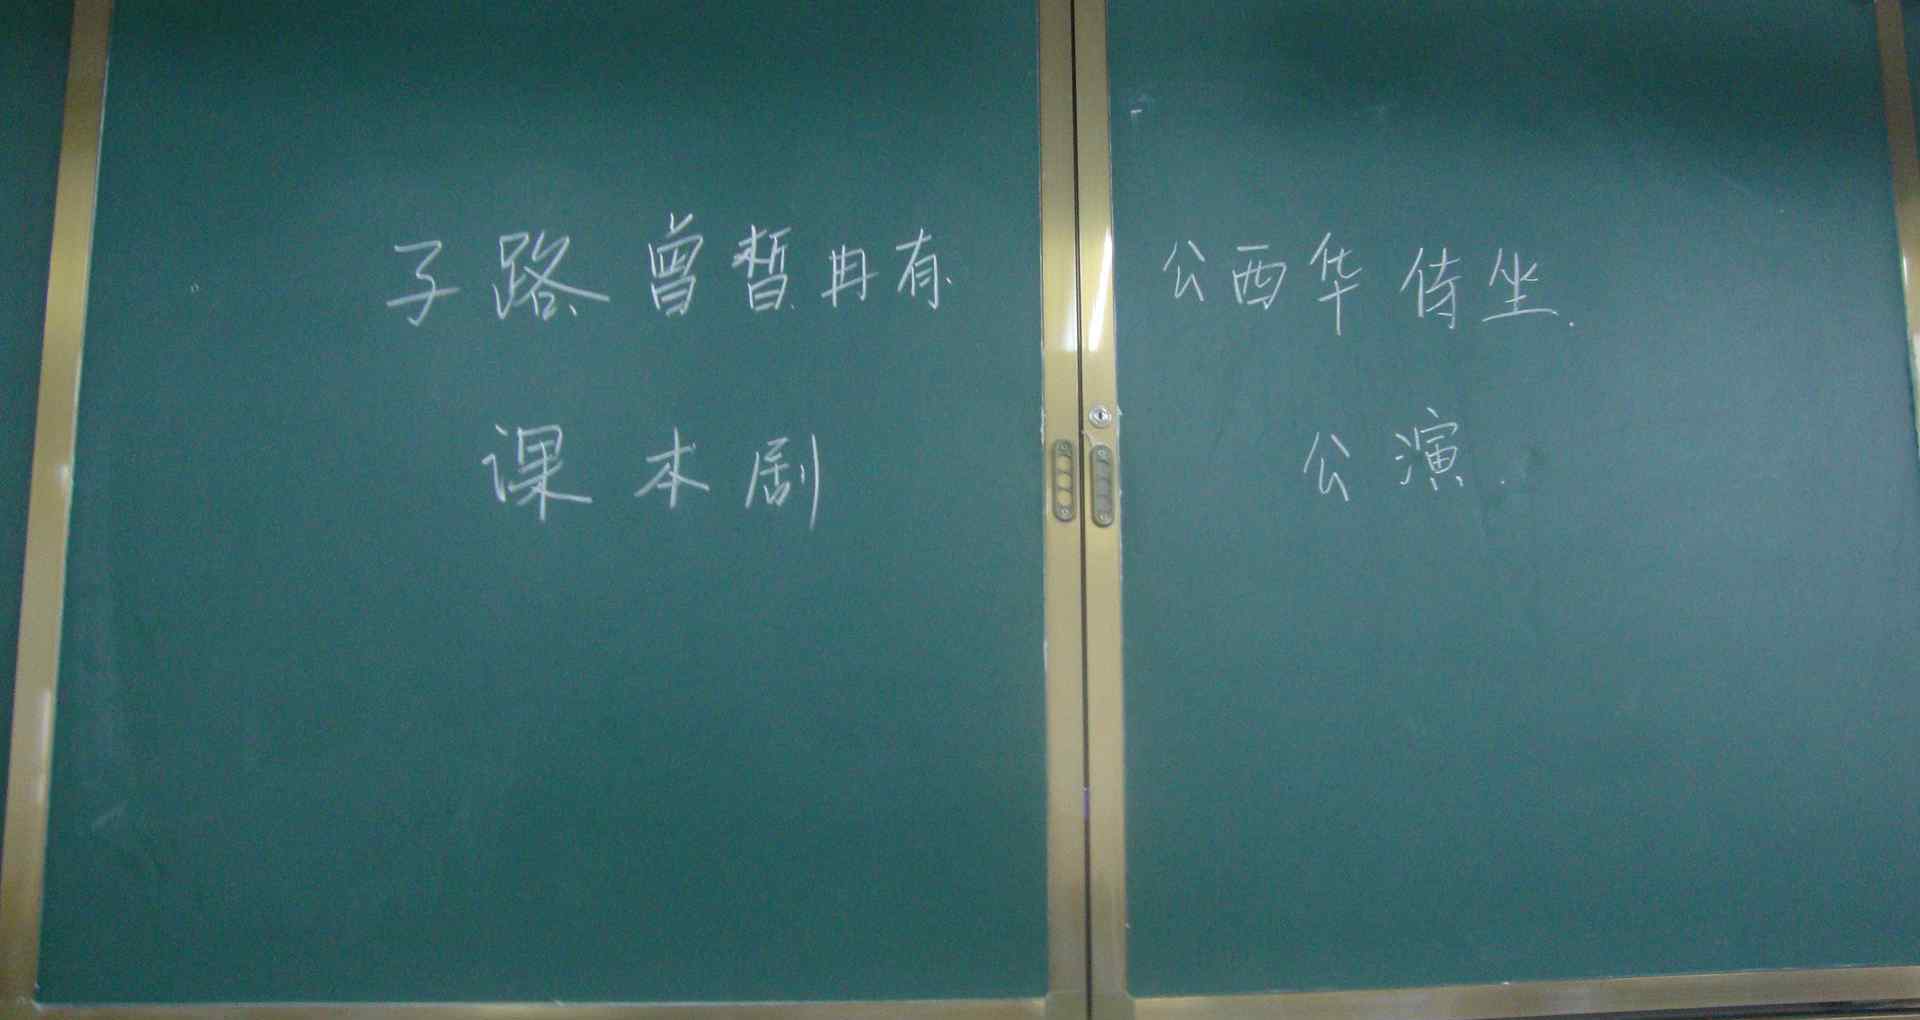 子路 曾皙 冉有 公西华 侍坐.
课本剧 公演.